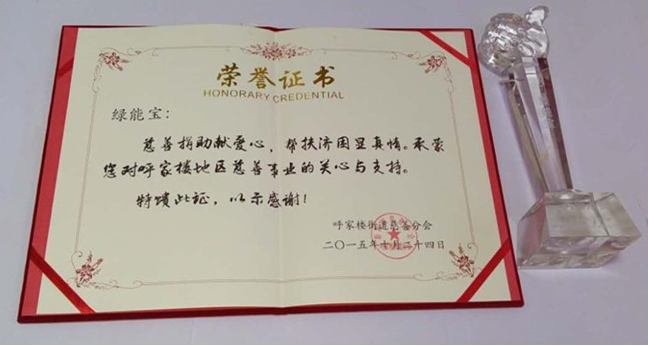 荣誉证书
HONORARY CREDENTIAL
绿能宝：
慈善捐助献爱心，帮扶济困显真情。承蒙
您对呼家楼地区慈善事业的关心与支持。
特馈此证，以示感谢！
呼家楼街道慈善分会
二〇一五年十月二十四日